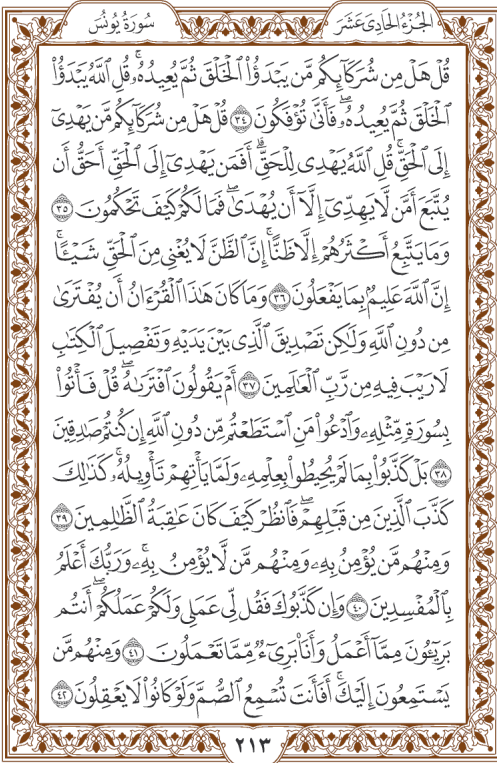 الجُزْءُ الحَادِى عَشَرَ
سُورَةُ يُونُسَ
قُلْ هَلْ مِن شُرَكَآئِكُم مَّن يَبْدَؤُا۟ ٱلْخَلْقَ ثُمَّ يُعِيدُهُۥ ۚ قُلِ ٱللَّهُ يَبْدَؤُا۟
ٱلْخَلْقَ ثُمَّ يُعِيدُهُۥ ۖ فَأَنَّىٰ تُؤْفَكُونَ ٣٤ قُلْ هَلْ مِن شُرَكَآئِكُم مَّن يَهْدِىٓ
إِلَى ٱلْحَقِّ ۚ قُلِ ٱللَّهُ يَهْدِى لِلْحَقِّ ۗ أَفَمَن يَهْدِىٓ إِلَى ٱلْحَقِّ أَحَقُّ أَن
يُتَّبَعَ أَمَّن لَّا يَهِدِّىٓ إِلَّآ أَن يُهْدَىٰ ۖ فَمَا لَكُمْ كَيْفَ تَحْكُمُونَ ٣٥
وَمَا يَتَّبِعُ أَكْثَرُهُمْ إِلَّا ظَنًّا ۚ إِنَّ ٱلظَّنَّ لَا يُغْنِى مِنَ ٱلْحَقِّ شَيْـًٔا ۚ
إِنَّ ٱللَّهَ عَلِيمٌۢ بِمَا يَفْعَلُونَ ٣٦ وَمَا كَانَ هَٰذَا ٱلْقُرْءَانُ أَن يُفْتَرَىٰ
مِن دُونِ ٱللَّهِ وَلَٰكِن تَصْدِيقَ ٱلَّذِى بَيْنَ يَدَيْهِ وَتَفْصِيلَ ٱلْكِتَٰبِ
لَا رَيْبَ فِيهِ مِن رَّبِّ ٱلْعَٰلَمِينَ ٣٧ أَمْ يَقُولُونَ ٱفْتَرَىٰهُ ۖ قُلْ فَأْتُوا۟
بِسُورَةٍ مِّثْلِهِۦ وَٱدْعُوا۟ مَنِ ٱسْتَطَعْتُم مِّن دُونِ ٱللَّهِ إِن كُنتُمْ صَٰدِقِينَ
٣٨ بَلْ كَذَّبُوا۟ بِمَا لَمْ يُحِيطُوا۟ بِعِلْمِهِۦ وَلَمَّا يَأْتِهِمْ تَأْوِيلُهُۥ ۚ كَذَٰلِكَ
كَذَّبَ ٱلَّذِينَ مِن قَبْلِهِمْ ۖ فَٱنظُرْ كَيْفَ كَانَ عَٰقِبَةُ ٱلظَّٰلِمِينَ ٣٩
وَمِنْهُم مَّن يُؤْمِنُ بِهِۦ وَمِنْهُم مَّن لَّا يُؤْمِنُ بِهِۦ ۚ وَرَبُّكَ أَعْلَمُ
بِٱلْمُفْسِدِينَ ٤٠ وَإِن كَذَّبُوكَ فَقُل لِّى عَمَلِى وَلَكُمْ عَمَلُكُمْ ۖ أَنتُم
بَرِيٓـُٔونَ مِمَّآ أَعْمَلُ وَأَنَا۠ بَرِىٓءٌ مِّمَّا تَعْمَلُونَ ٤١ وَمِنْهُم مَّن
يَسْتَمِعُونَ إِلَيْكَ ۚ أَفَأَنتَ تُسْمِعُ ٱلصُّمَّ وَلَوْ كَانُوا۟ لَا يَعْقِلُونَ ٤٢
٢١٣